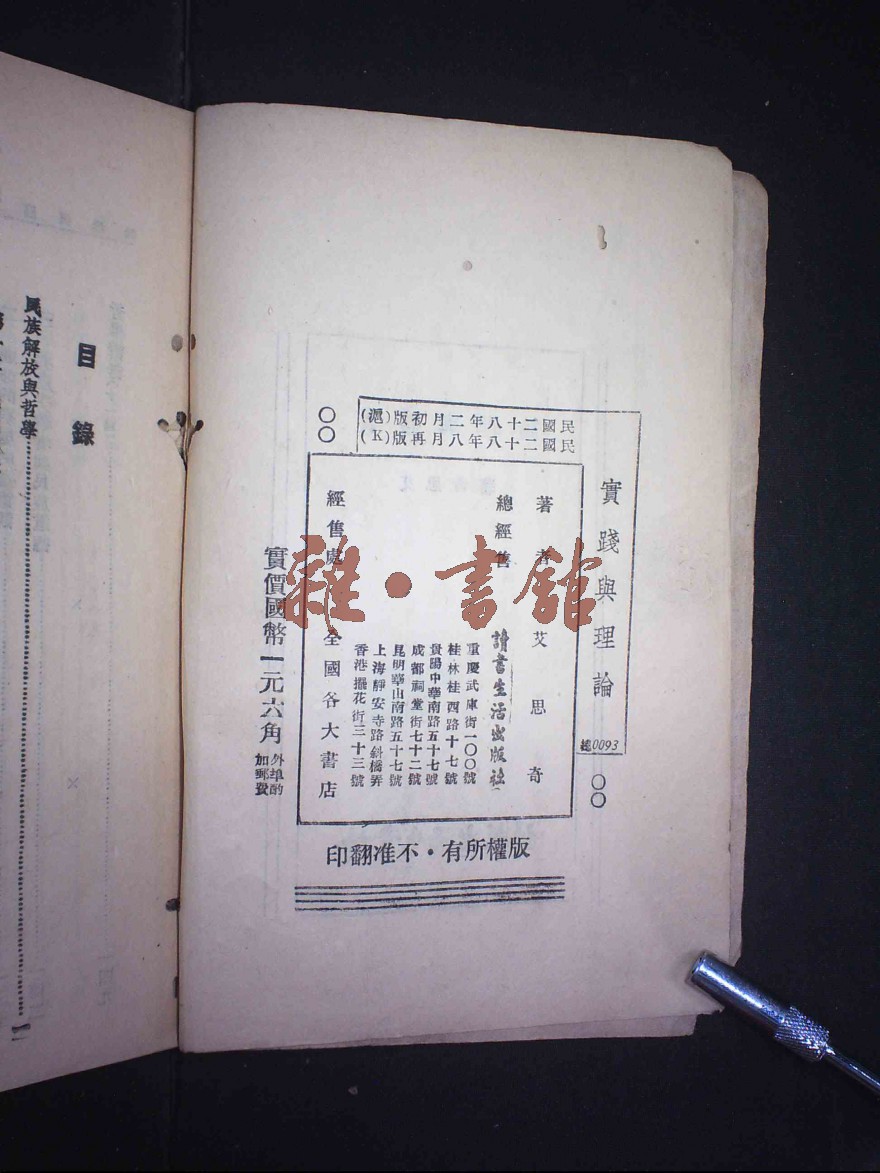 實踐與理論
總0093
民國二十八年二月初版(滬)
民國二十八年八月再版(K)
著者 艾思奇
總經售 讀書生活出版社
重慶武庫街一〇〇號
桂林桂西路十七號
貴陽中華南路五十七號
成都祠堂街七十二號
昆明華山南路五十七號
上海靜安寺路斜橋弄
香港擺花街三十三號
經售處 全國各大書店
實價國幣一元六角
外埠酌
加郵費
版權所有·不准翻印
雜·書館
目錄
民族解放與哲學